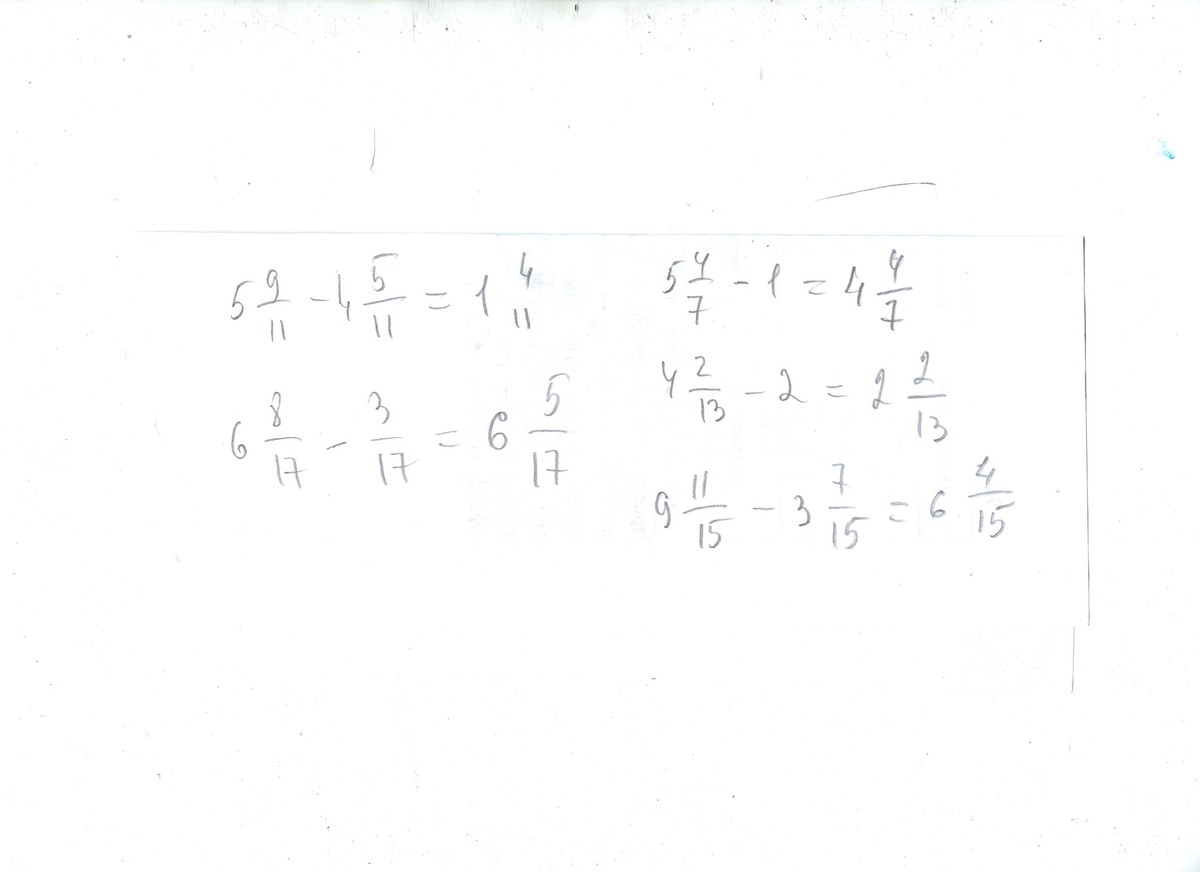 5 9/11 - 4 5/11 = 1 4/11
6 8/17 - 3/17 = 6 5/17
5 4/7 - 1 = 4 4/7
4 2/13 - 2 = 2 2/13
9 11/15 - 3 7/15 = 6 4/15